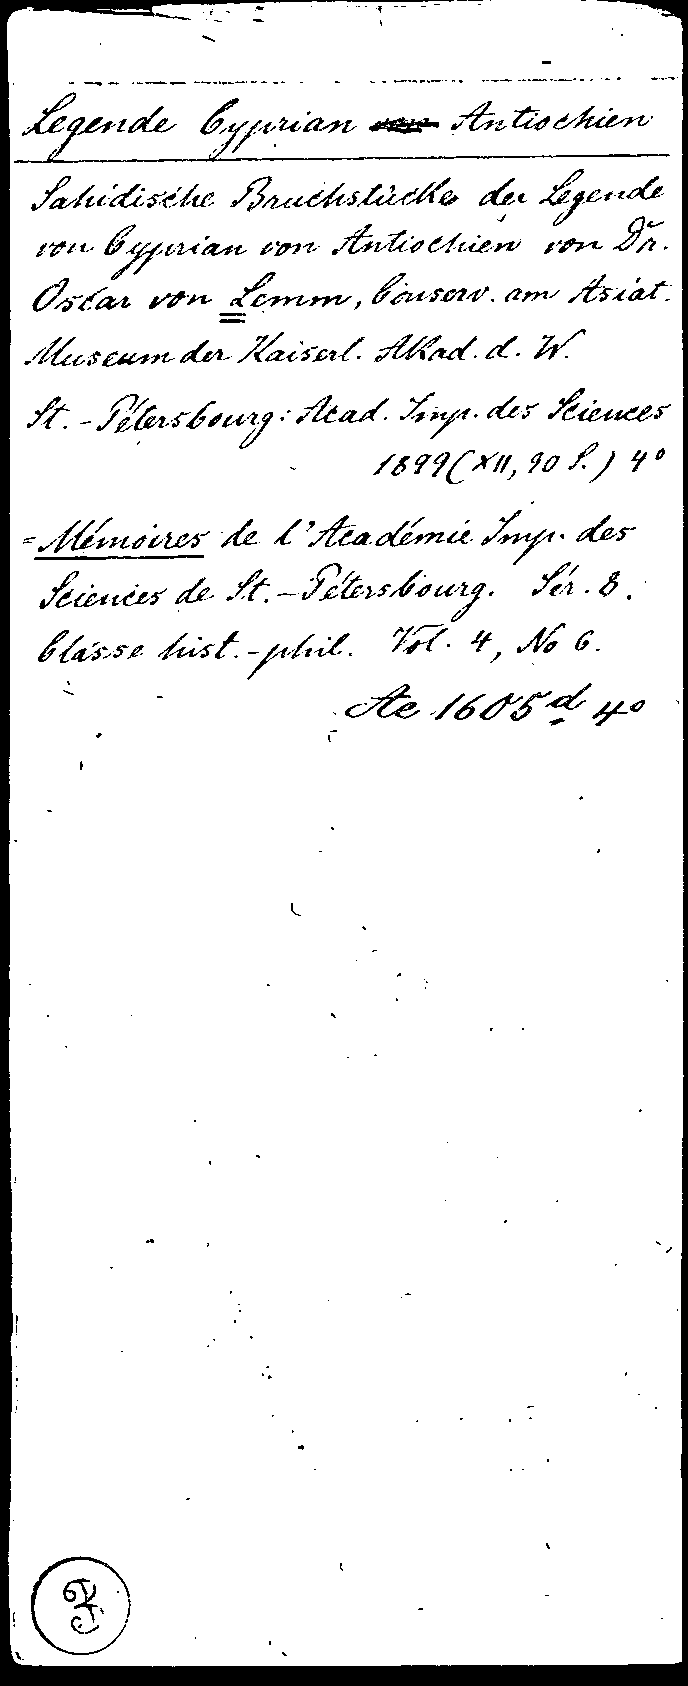 Legende Cyprian von Antiochien
Sahidische Bruchstücke der Legende
von Cyprian von Antiochien von Dr.
Oscar von Lemm, Conserv. am Asiat.
Museum der Kaiserl. Akad. d. W.
St.-Pétersbourg: Acad. Imp. des Sciences
1899 (XII, 90 S.) 4°
=Mémoires de l'Académie Imp. des
Sciences de St.-Pétersbourg. Sér. 8.
Classe hist.-phil. Vol. 4, No 6.
Ac 1605 d 4°